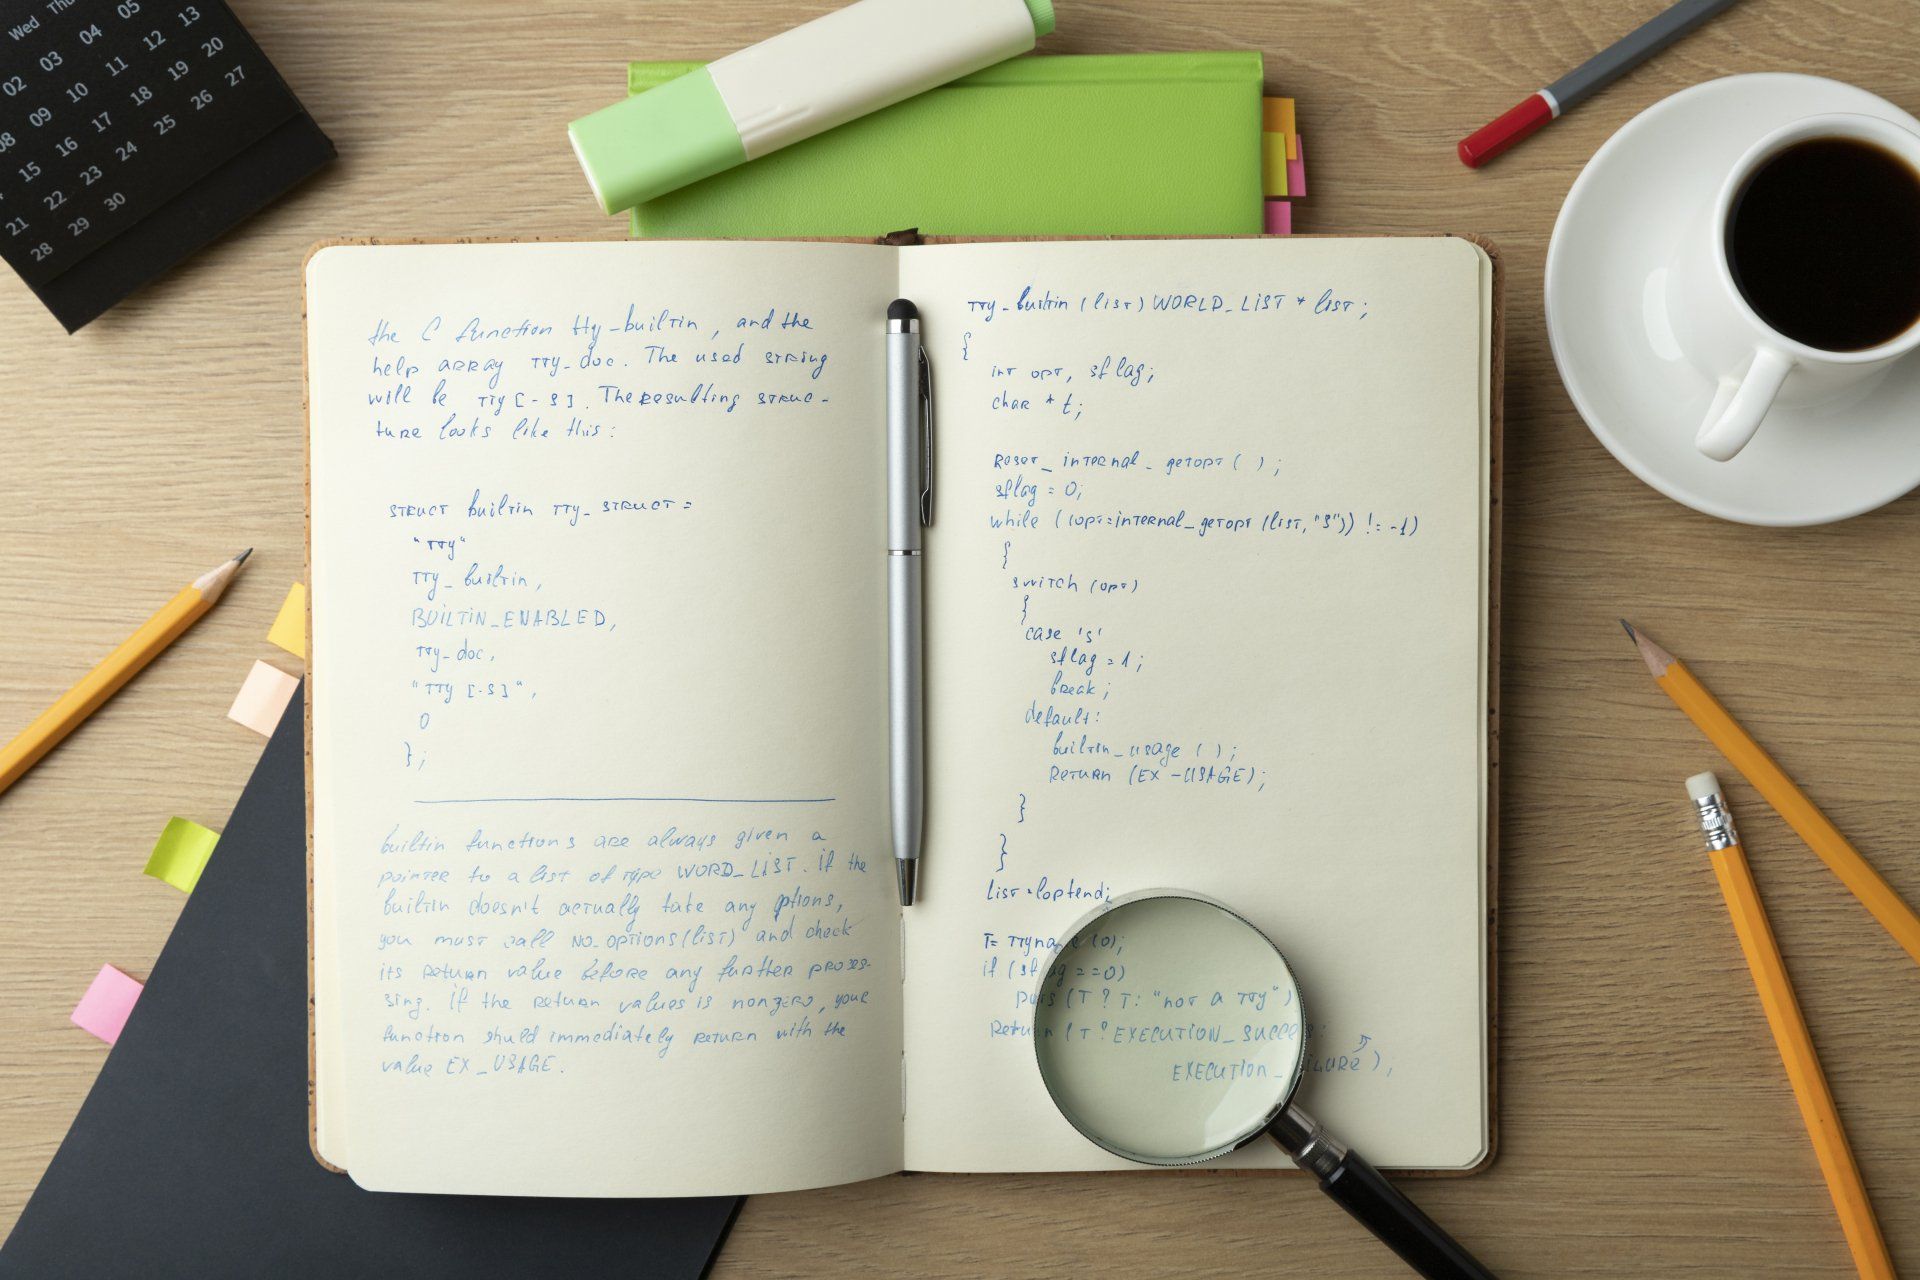 Wed Thu
04 05
02 03 11 12 13
08 09 10 18 19 20
15 16 17 25 26 27
21 22 23 24
28 29 30
the C function tty_builtin, and the
help array tty_doc. The used string
will be tty [-s]. The resulting struc-
ture looks like this:
struct builtin tty_struct =
"tty"
tty_builtin,
BUILTIN_ENABLED,
tty_doc,
"tty [-s]",
0
};
builtin functions are always given a
pointer to a list of type WORD_LIST. if the
builtin doesn't actually take any ptions,
you must call no_options(list) and check
its return value before any further proses-
sing. if the return values is nonzero, your
function should immediately return with the
value EX_USAGE.
tty_builtin (list) WORLD_LIST * list;
{
int opt, sflag;
char * t;
Reset_internal_getopt ( );
sflag = 0;
while ((opt=internal_getopt (list, "s")) != -1)
{
switch (opt)
{
case 's'
sflag = 1;
break;
default:
builtin_usage ( );
Return (EX-USAGE);
}
}
List = loptend;
T= ttyna (0);
if (sf ag ==0)
puts (T ? T: "not a tty")
Return (T ? EXECUTION_SUCCE :
EXECUTION_ ILURE ),